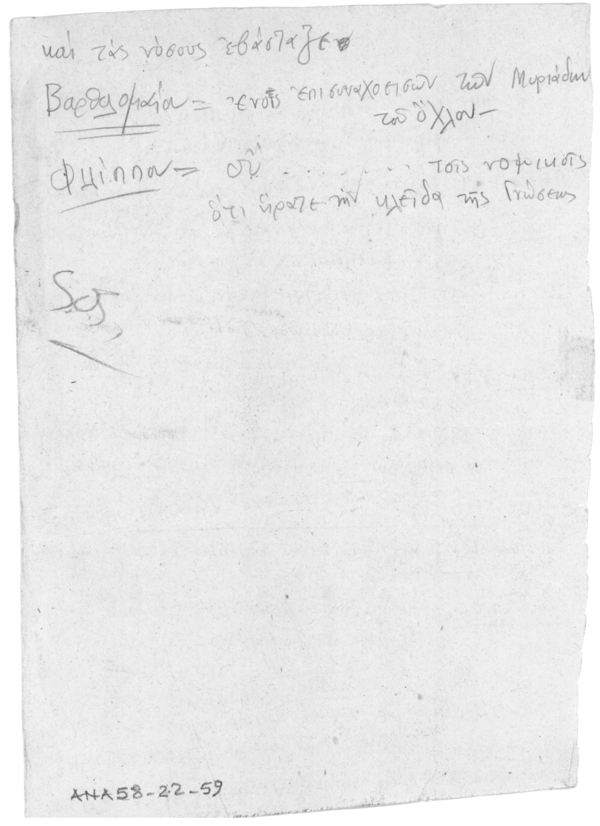 καί τάς νόσους ἐβάσταζεν
Βαρθολομαίου = ἐν οἷς ἐπισυναχθεισῶν τῶν Μυριάδων
τοῦ ὄχλου -
Φιλίππου = οὐ . . . . . . . τοῖς νομικοῖς
ὅτι ἤρατε τήν κλεῖδα τῆς Γνώσεως
ANA58-22-59